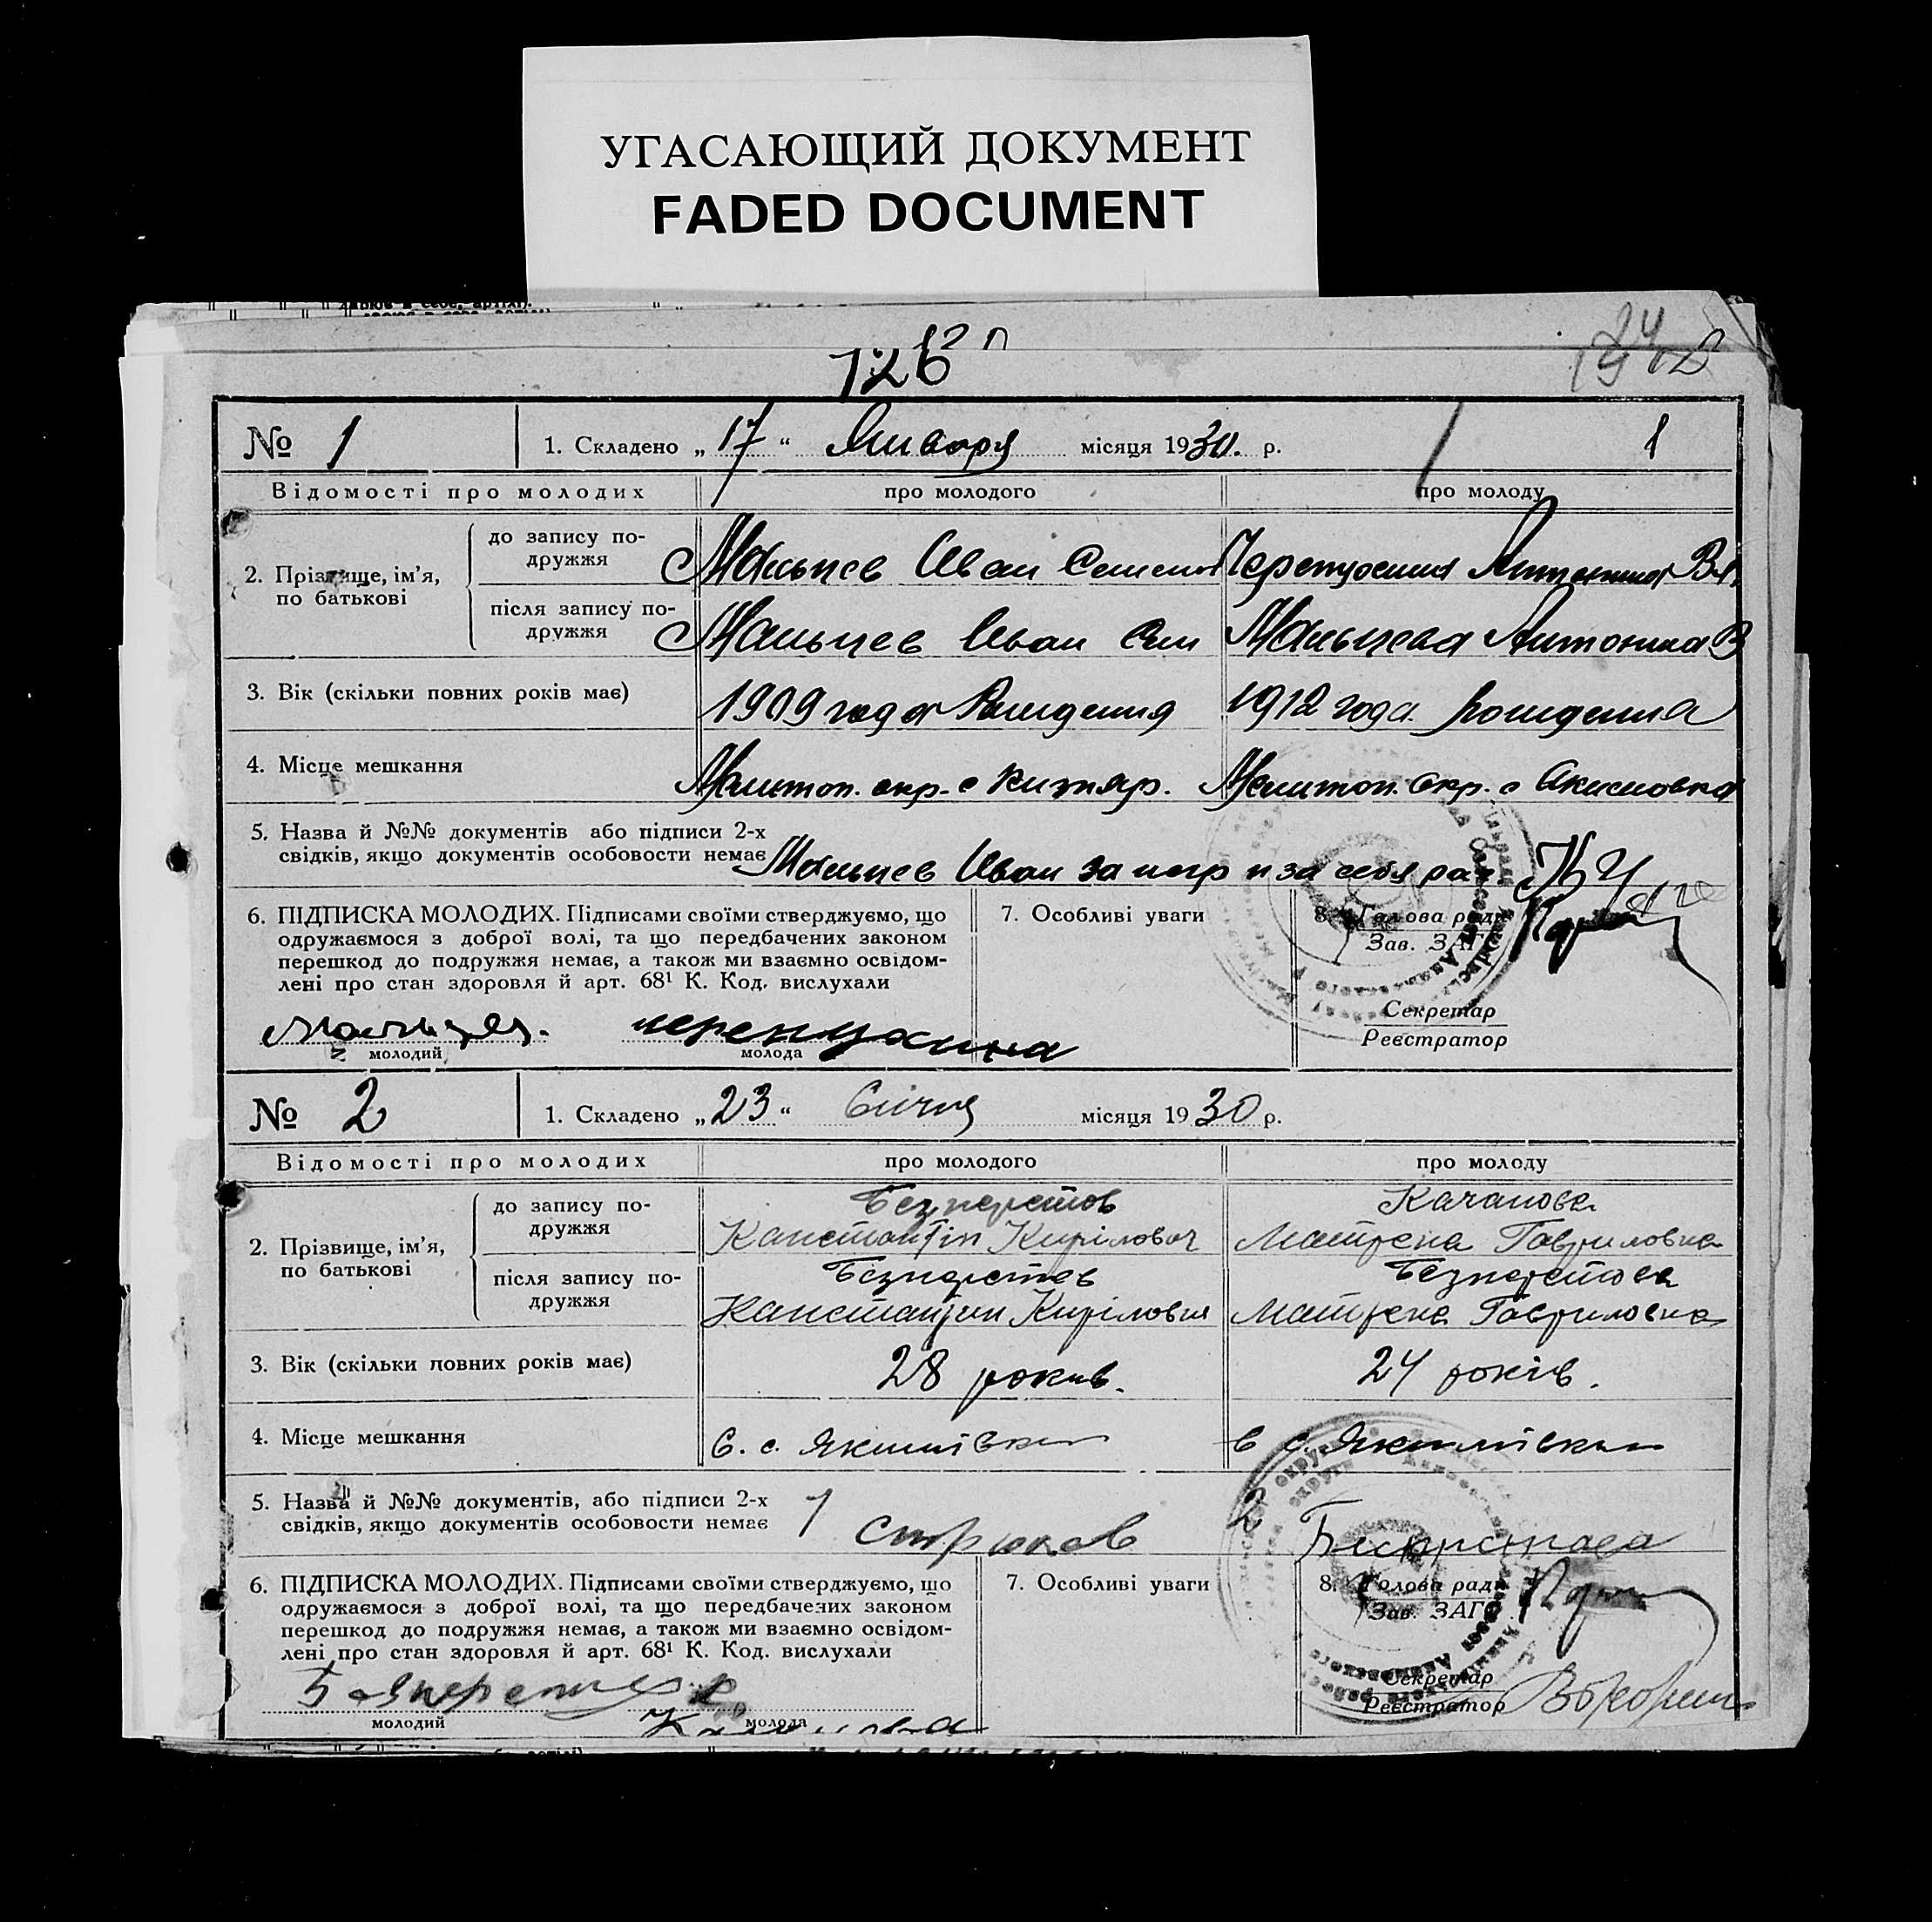 УГАСАЮЩИЙ ДОКУМЕНТ
FADED DOCUMENT
126
№ 1
1. Складено „17“ Января місяця 1930. р.
1
Відомості про молодих
про молодого
про молоду
2. Прізвище, ім'я, по батькові
до запису по-
дружжя
Мальцев Иван Семенов
Антонина
після запису по-
дружжя
Мальцев Иван Сем
Мальцева Антонина В
3. Вік (скільки повних років має)
1909 года Рождения
1912 года рождения
4. Місце мешкання
Мелитоп. окр. с
Мелитоп. окр. с Акимовка
5. Назва й №№ документів або підписи 2-х
свідків, якщо документів особовости немає
Мальцев Иван за и за себя
6. ПІДПИСКА МОЛОДИХ. Підписами своїми стверджуємо, що
одружаємося з доброї волі, та що передбачених законом
перешкод до подружжя немає, а також ми взаємно освідом-
лені про стан здоров'я й арт. 68¹ К. Код. вислухали
7. Особливі уваги
8. Голова ради
Зав. ЗАГС
Секретар
Реєстратор
молодий
молода
№ 2
1. Складено „23“ Січня місяця 1930 р.
Відомості про молодих
про молодого
про молоду
2. Прізвище, ім'я,
по батькові
до запису по-
дружжя
Безперстов
Канстантін Кирілович
Качанова
Матрена Гавриловна
після запису по-
дружжя
Безперстов
Канстантин Кирілович
Безперстова
Матрена Гавриловна
3. Вік (скільки повних років має)
28 років.
24 років.
4. Місце мешкання
в. с. Якимівки
в с. Якимівки
5. Назва й №№ документів, або підписи 2-х
свідків, якщо документів особовости немає
1 Стрюков
2
6. ПІДПИСКА МОЛОДИХ. Підписами своїми стверджуємо, що
одружаємося з доброї волі, та що передбачених законом
перешкод до подружжя немає, а також ми взаємно освідом-
лені про стан здоров'я й арт. 68¹ К. Код. вислухали
7. Особливі уваги
8. Голова ради
Зав. ЗАГС
Секретар
Реєстратор
молодий
молода